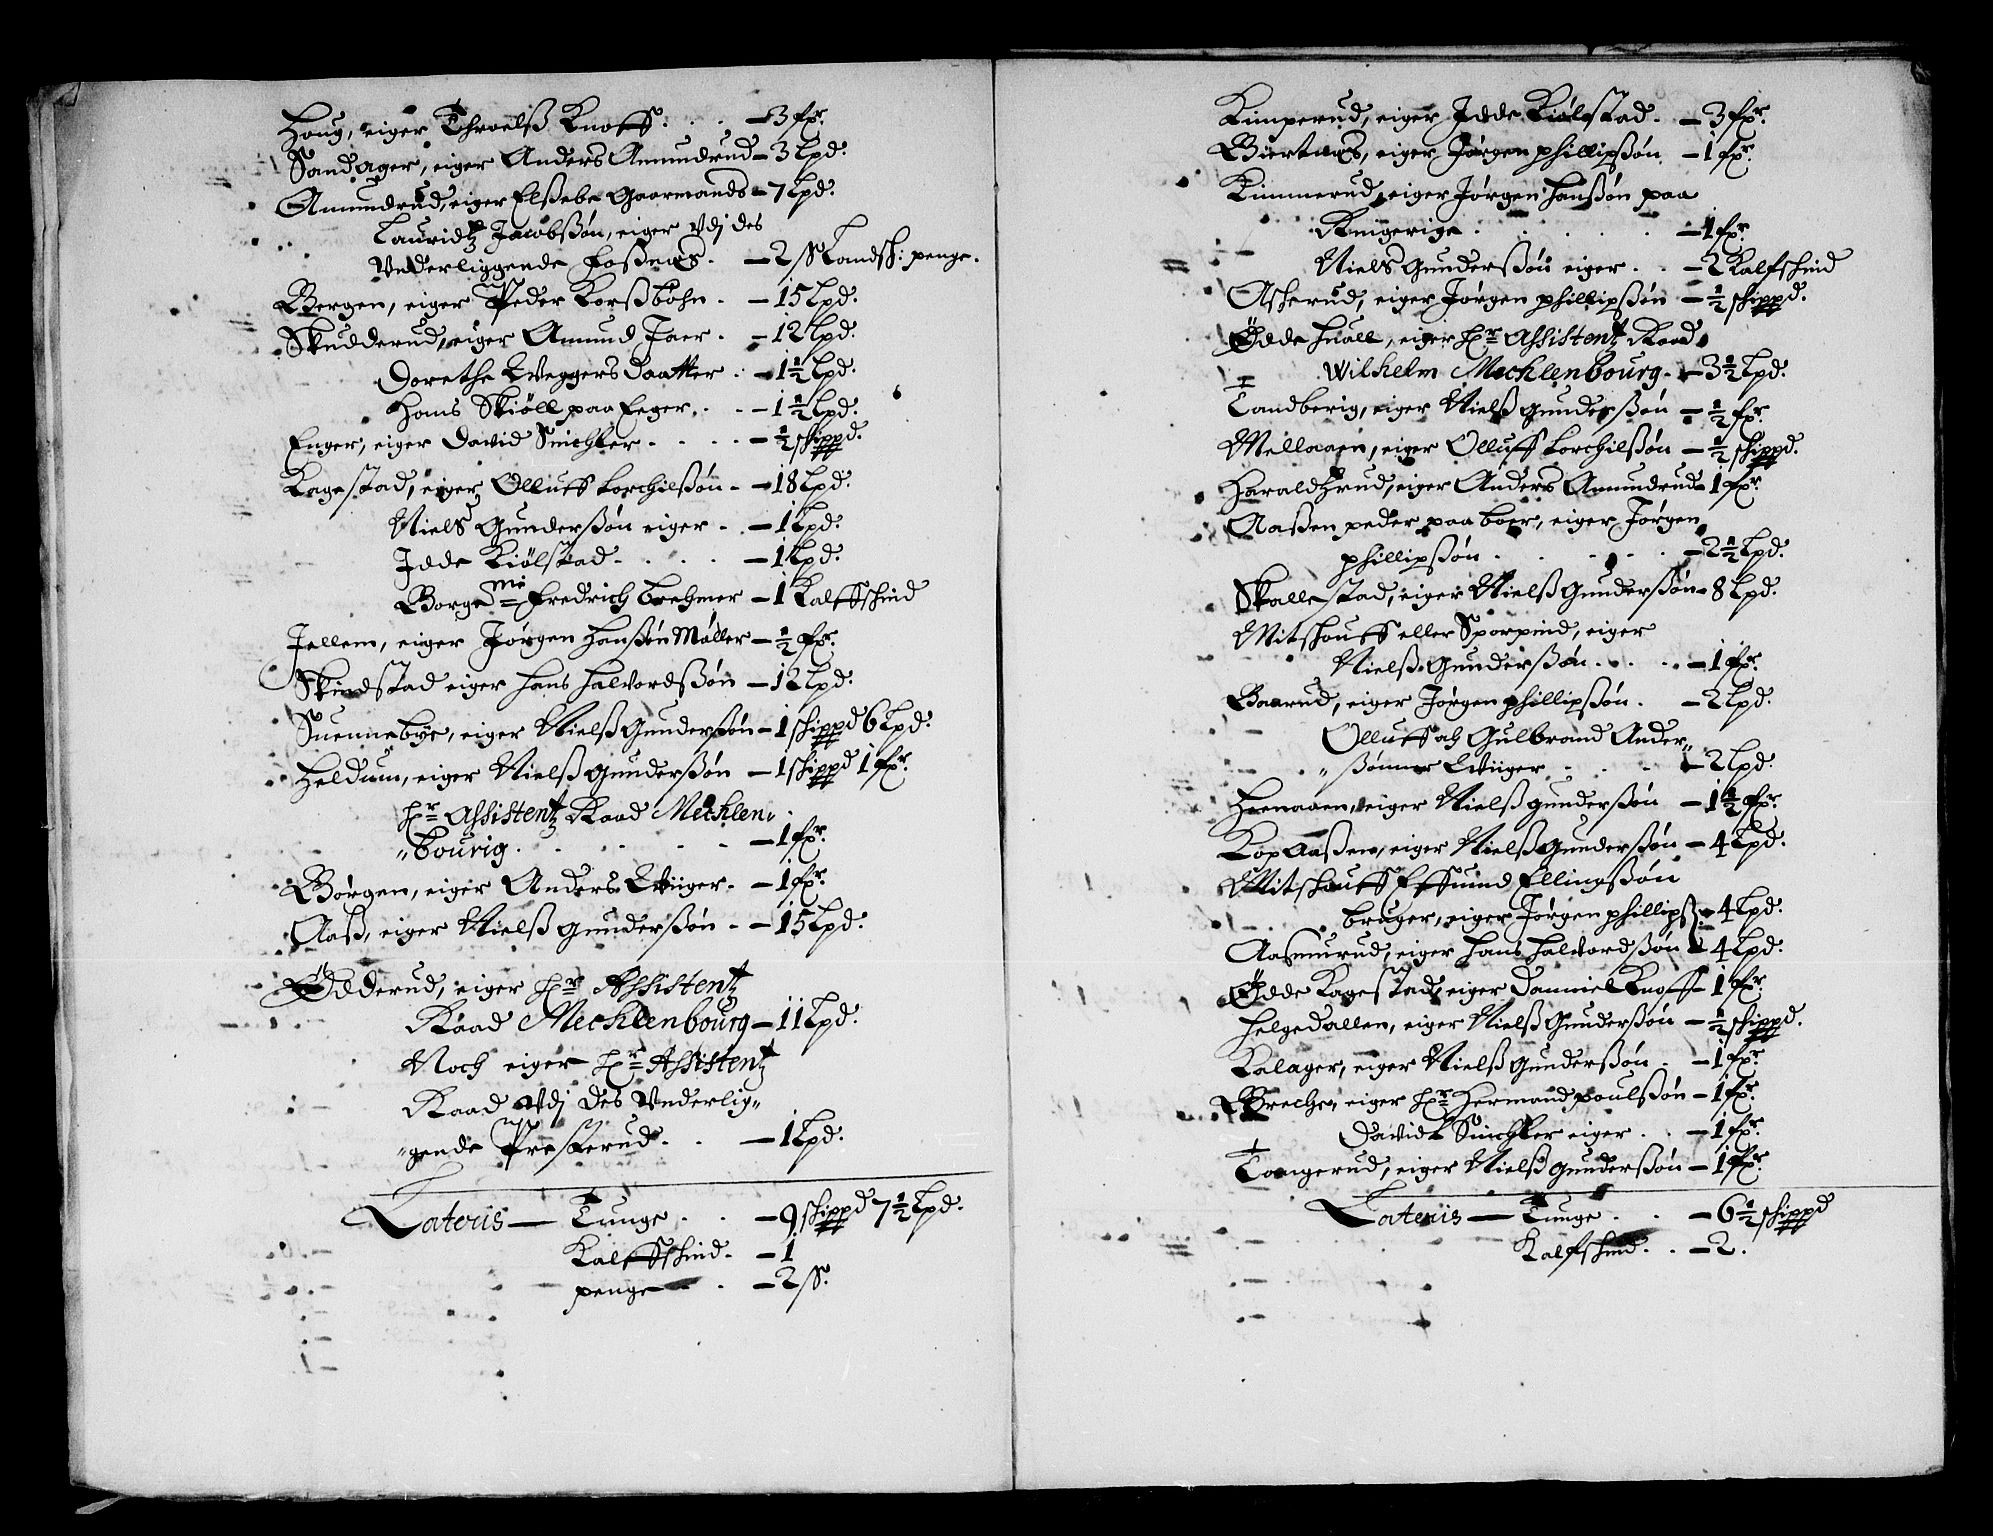 Houg, eiger Throelß Knoff . . . — 3 fxr.
Sandager, eiger Anders Amundrud — 3 Lpd.
Amundrud, eiger Elßebe Gaarmands — 7 Lpd.
Lauridtz Jacobßøn, eiger Vdj des
Vnderliggende Foßnæs. — 2 ß Landsk: penge.
Bergen, eiger Peder Korßbøhn . — 15 Lpd.
Skudderud, eiger Amund Jaer . — 12 Lpd.
Dorethe Eweggers Daatter . — 1½ Lpd.
Hans Skiöll paa Eeger . . — 1½ Lpd.
Enger, eiger David Sinchler . . . — ½ skippd.
Kagestad, eiger Olluff torchilßøn . — 18 Lpd.
Niels Gunderßøn eiger . — 1 Lpd.
Jdde Kiölstad . . . . — 1 Lpd.
Borgemr Fredrich brehmer — 1 Kalffskind
Jellem, eiger Jørgen Hanßøn Møller — ½ fxr.
Skindstad eiger Hans Halvordßøn — 12 Lpd.
Suennebye, eiger Nielß Gunderßøn — 1 skippd 6 Lpd.
Heldum, eiger Nielß Gunderßøn — 1 skippd 1 fxr.
Hr Assistentz Raad Mechlen„
„bourig . . . . . — 1 fxr.
Børgen, eiger Anders Wiiger . — 1 fxr.
Aaß, eiger Nielß Gunderßøn . — 15 Lpd.
Ödderud, eiger Hr Assistentz
Raad Mechlenbourg — 11 Lpd.
Noch eiger Hr Assistentz
Raad Vdj des Vnderlig„
„gende Presterud . . — 1 Lpd.
Lateris — Tunge . . — 9 skippd 7½ Lpd.
Kalffskind . — 1
penge . — 2 ß.
Kimperud, eiger Jdde Kiölstad . — 3 fxr.
Biertnæs, eiger Jørgen phillipßøn . — 1 fxr.
Kimmerud, eiger Jørgen Hanßøn paa
Ringerige . . . . . — 1 fxr.
Niels Gunderßøn eiger . . — 2 Kalfskind
Askerud, eiger Jørgen phillipßøn — ½ skippd.
Ödde huall, eiger Hr Assistentz Raad
Wilhelm Mechlenbourg . — 3½ Lpd.
Tandberig, eiger Nielß Gunderßøn — ½ fxr.
Mellaaen, eiger Olluff torchilßøn — ½ skippd.
Haraldtzrud, eiger Anders Amundrud — 1 fxr.
Aaßen peder paa boer, eiger Jørgen
phillipßøn . . . . . — 2½ Lpd.
Skallestad, eiger Nielß Gunderßøn — 8 Lpd.
Mitskouff eller Sporpind, eiger
Nielß Gunderßøn . . . . — 1 fxr.
Baarud, eiger Jørgen phillipßøn . — 2 Lpd.
Olluff och Gulbrand Ander„
„ßønner Wiiger . . . . — 2 Lpd.
Heenaaen, eiger Nielß Gunderßøn — 1½ fxr.
Kopaaßen, eiger Nielß Gunderßøn — 4 Lpd.
Mitskouff Effuind Ellingßøn
bruger, eiger Jørgen phillipß: — 4 Lpd.
Aasmurud, eiger Hans Halvordßøn — 4 Lpd.
Ödde Kagestad, eiger Danniel Knoff — 1 fxr.
Helgedallen, eiger Nielß Gunderßøn — ½ skippd.
Kalager, eiger Nielß Gunderßøn . — 1 fxr.
Breche, eiger Hr Hermand poulßøn — 1 fxr.
Davidt Sinchler eiger . — 1 fxr.
Tongerud, eiger Nielß Gunderßøn — 1 fxr.
Lateris — Tunge . . — 6½ skippd
Kalfskind . . — 2 .